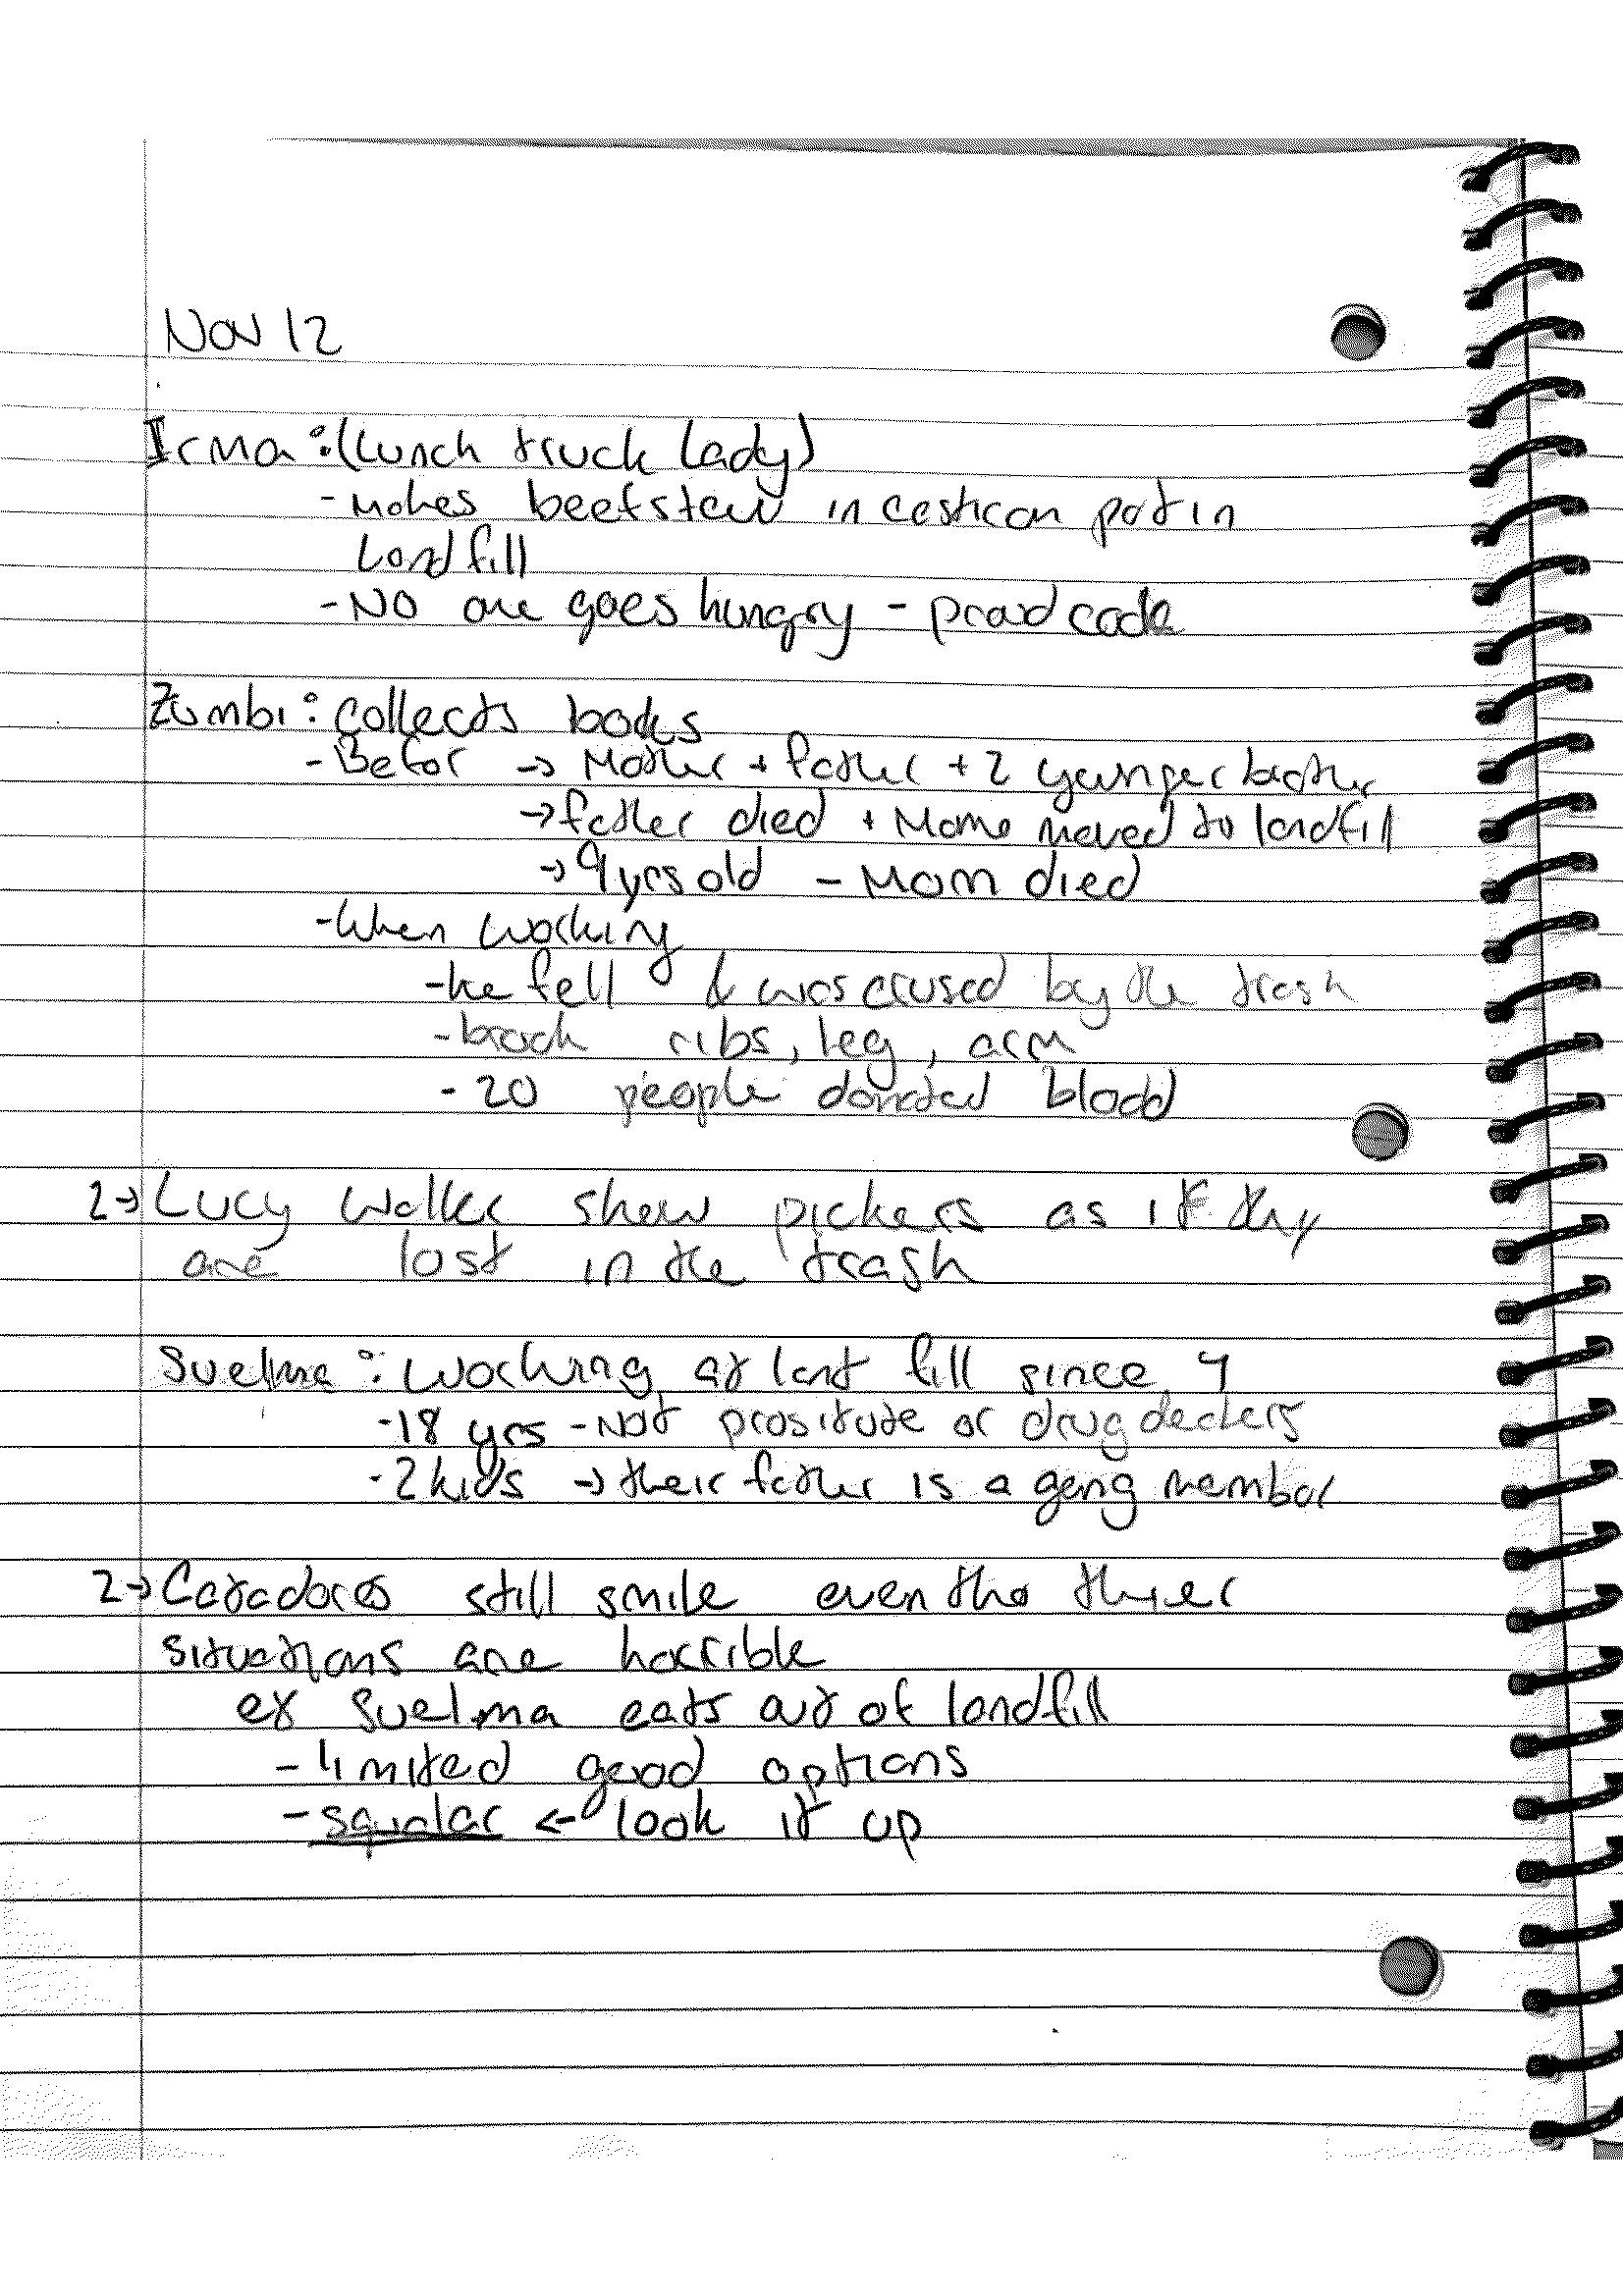 Nov 12
Irma: (Lunch truck lady)
- Makes beefstew in casticon pot in
landfill
- NO one goes hungry - proud code
Zumbi: collects books
- Befor → Mother + father + 2 younger brother
→ father died + Mome moved to landfill
→ 9 yrs old - Mom died
- When working
- he fell & was crused by the trash
- brook ribs, leg, arm
- 20 people donated blood
2→ Lucy Walker show pickers as if they
are lost in the trash
Suelma: Working at lant fill since 7
- 18 yrs - Not prositute or drug dealers
- 2 kids → their father is a gang member
2→ Catadores still smile even tho thier
situations are horrible
ex Suelma eats out of landfill
- limited good options
- squalar ← look it up